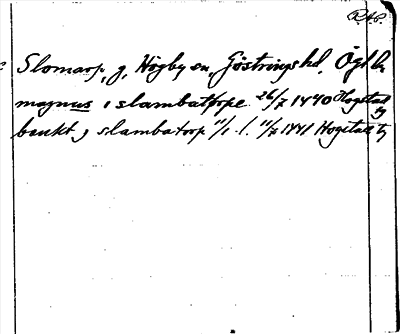 R.A.P.
Slomarp, g, Högby sn, Göstrings hd, Ögl
magnus i slambathorpe 26/7 1440 Hogstad
benkt i slambatorp 11/1 11/7 1441 Hogstad tg